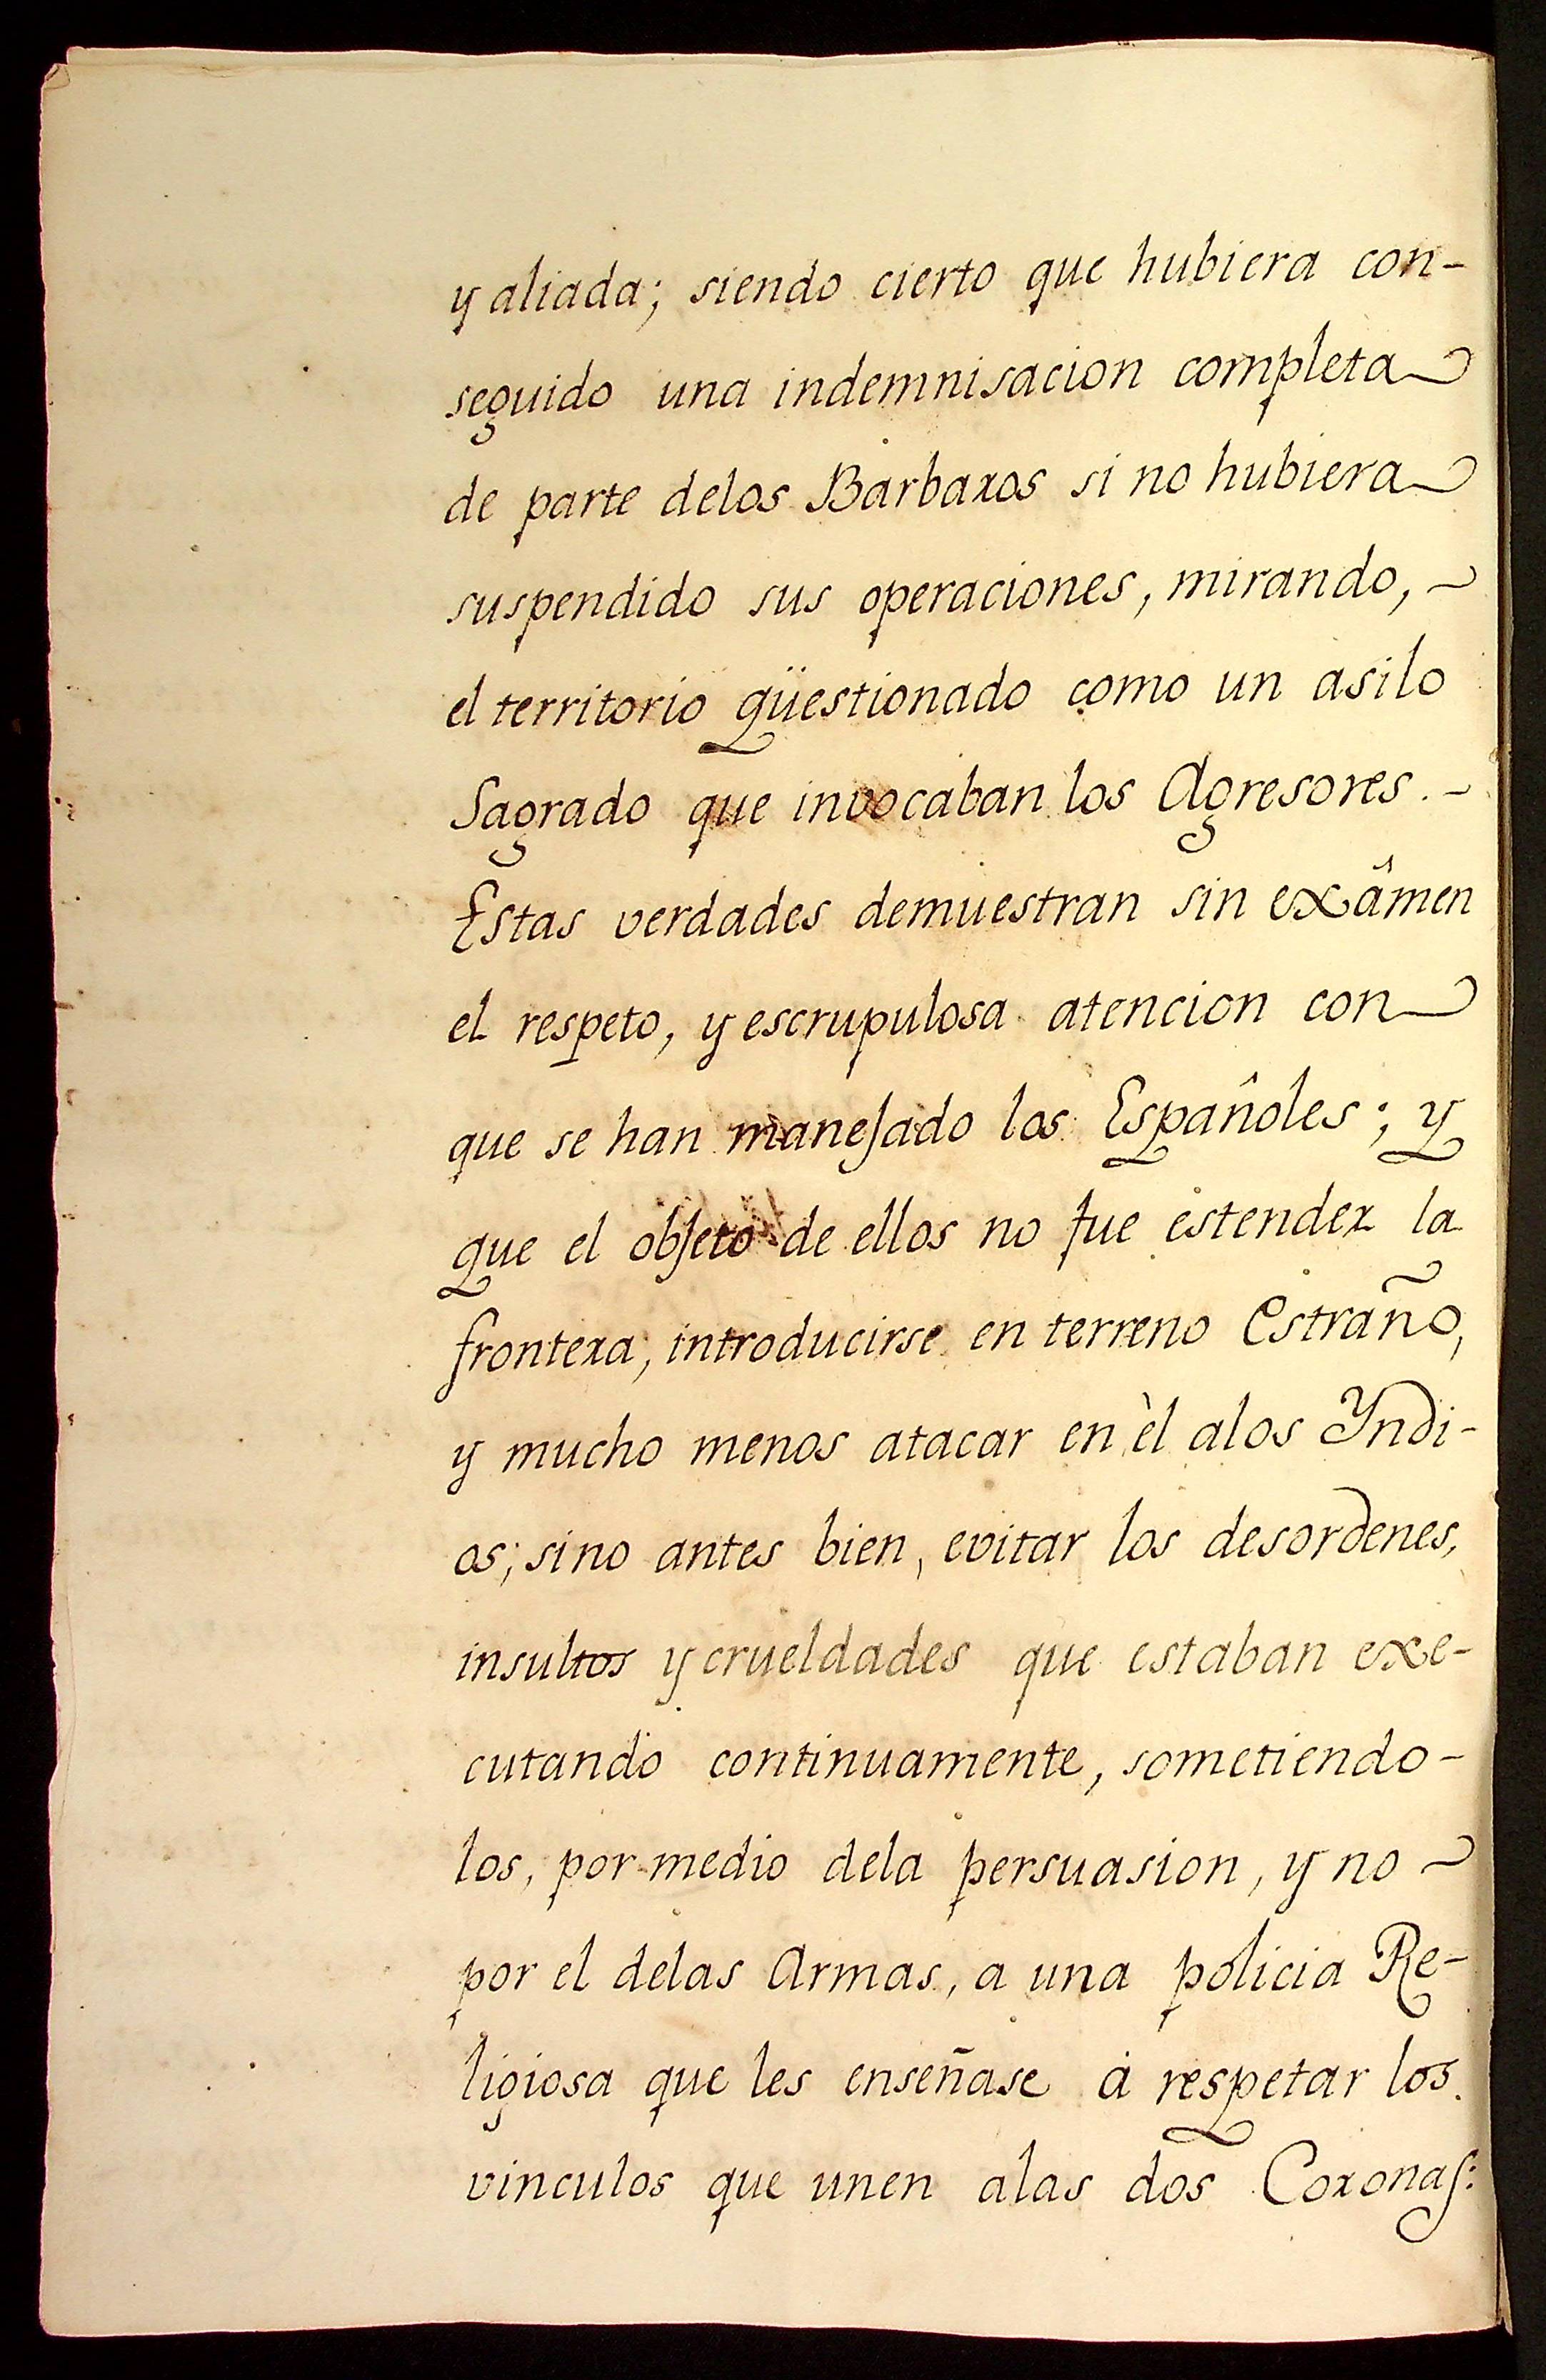 y aliada; siendo cierto que hubiera con-
seguido una indemnisacion completa
de parte delos Barbaros si no hubiera
suspendido sus operaciones, mirando,
el territorio qüestionado como un asilo
Sagrado que invocaban los Agresores.-
Estas verdades demuestran sin exâmen
el respeto, y escrupulosa atencion con
que se han manejado los Españoles; y
que el objeto de ellos no fue estender la
frontera, introducirse en terreno Estraño,
y mucho menos atacar en èl alos Yndi-
os; sino antes bien, evitar los desordenes,
insultos y crueldades que estaban exe-
cutando continuamente, sometiendo-
los, por medio dela persuasion, y no
por el delas Armas, a una policia Re-
ligiosa que les enseñase à respetar los
vinculos que unen alas dos Coronas: